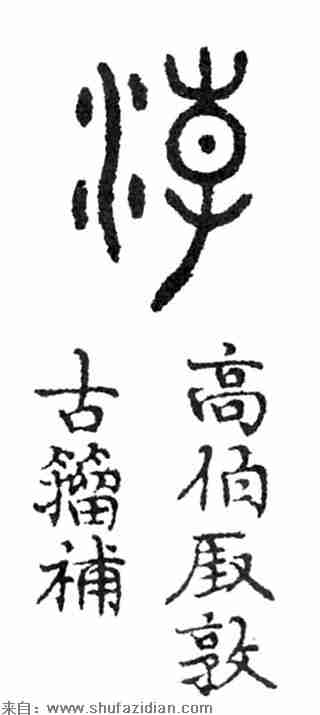 高伯敦
古籀補
来自：www.shufazidian.com